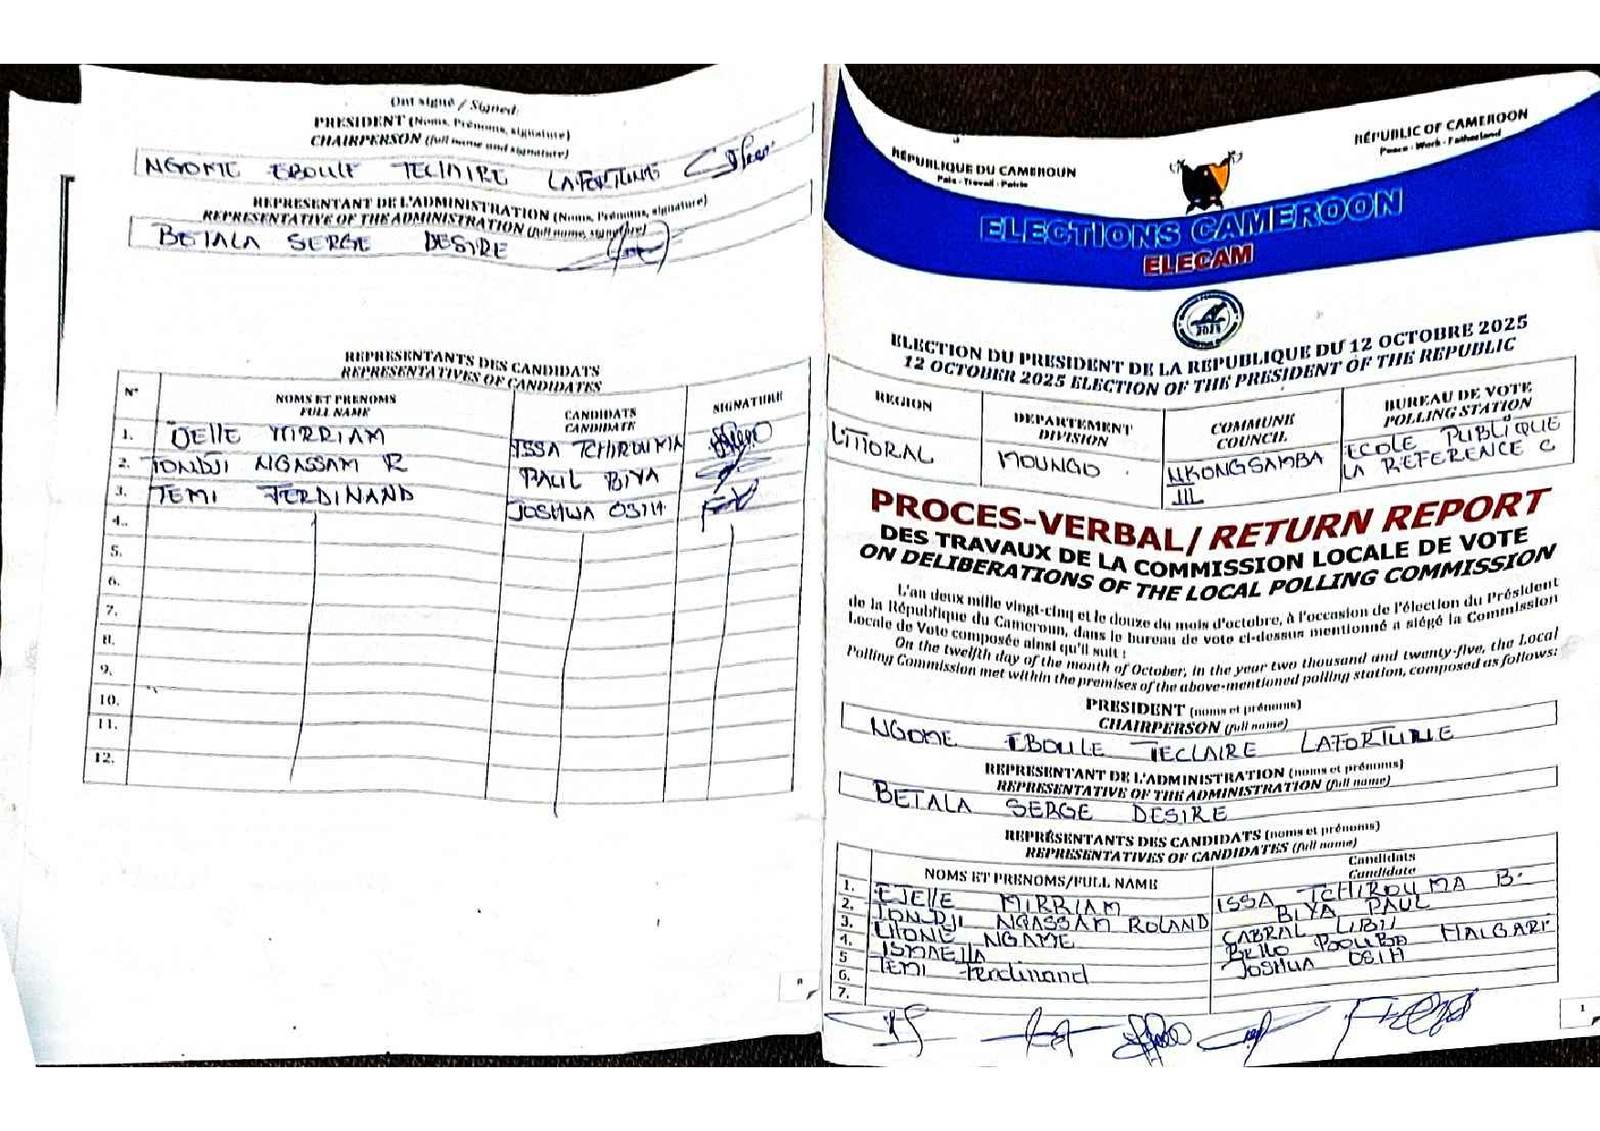 Ont signé / Signed:
PRESIDENT (Noms, Prénoms, signature)
CHAIRPERSON (full name and signature)
NGOME EBOULE TECLAIRE LAFORTUNE
REPRESENTANT DE L'ADMINISTRATION (Noms, Prénoms, signature)
REPRESENTATIVE OF THE ADMINISTRATION (full name, signature)
BETALA SERGE DESIRE
REPRESENTANTS DES CANDIDATS
REPRESENTATIVES OF CANDIDATES
N° NOMS ET PRENOMS CANDIDATS SIGNATURE
FULL NAME CANDIDATE
1. OELLE MIRRIAM ISSA TCHIROUMA
2. TONDJI NGASSAM R PAUL BIYA
3. TEMI FERDINAND JOSHUA OSIH
4.
5.
6.
7.
8.
9.
10.
11.
12.
8
RÉPUBLIQUE DU CAMEROUN
Paix - Travail - Patrie
REPUBLIC OF CAMEROON
Peace - Work - Fatherland
ELECTIONS CAMEROON
ELECAM
2025
ELECTION DU PRESIDENT DE LA REPUBLIQUE DU 12 OCTOBRE 2025
12 OCTOBER 2025 ELECTION OF THE PRESIDENT OF THE REPUBLIC
REGION DEPARTEMENT COMMUNE BUREAU DE VOTE
DIVISION COUNCIL POLLING STATION
LITTORAL MOUNGO NKONGSAMBA ECOLE PUBLIQUE
III LA REFERENCE C
PROCES-VERBAL/ RETURN REPORT
DES TRAVAUX DE LA COMMISSION LOCALE DE VOTE
ON DELIBERATIONS OF THE LOCAL POLLING COMMISSION
L'an deux mille vingt-cinq et le douze du mois d'octobre, à l'occasion de l'élection du Président
de la République du Cameroun, dans le bureau de vote ci-dessus mentionné a siégé la Commission
Locale de Vote composée ainsi qu'il suit :
On the twelfth day of the month of October, in the year two thousand and twenty-five, the Local
Polling Commission met within the premises of the above-mentioned polling station, composed as follows:
PRESIDENT (noms et prénoms)
CHAIRPERSON (full name)
NGOME EBOULE TECLAIRE LAFORTUNE
REPRESENTANT DE L'ADMINISTRATION (noms et prénoms)
REPRESENTATIVE OF THE ADMINISTRATION (full name)
BETALA SERGE DESIRE
REPRÉSENTANTS DES CANDIDATS (noms et prénoms)
REPRESENTATIVES OF CANDIDATES (full name)
NOMS ET PRENOMS/FULL NAME Candidats
Candidate
1. EJELLE MIRRIAM ISSA TCHIROUMA B.
2. TONDJI NGASSAM ROLAND BIYA PAUL
3. LIONE NGAME CABRAL LIBII
4. ISMAELLA BELLO BOUBA MAIGARI
5 TEMI Ferdinand JOSHUA OSIH
6.
7.
1